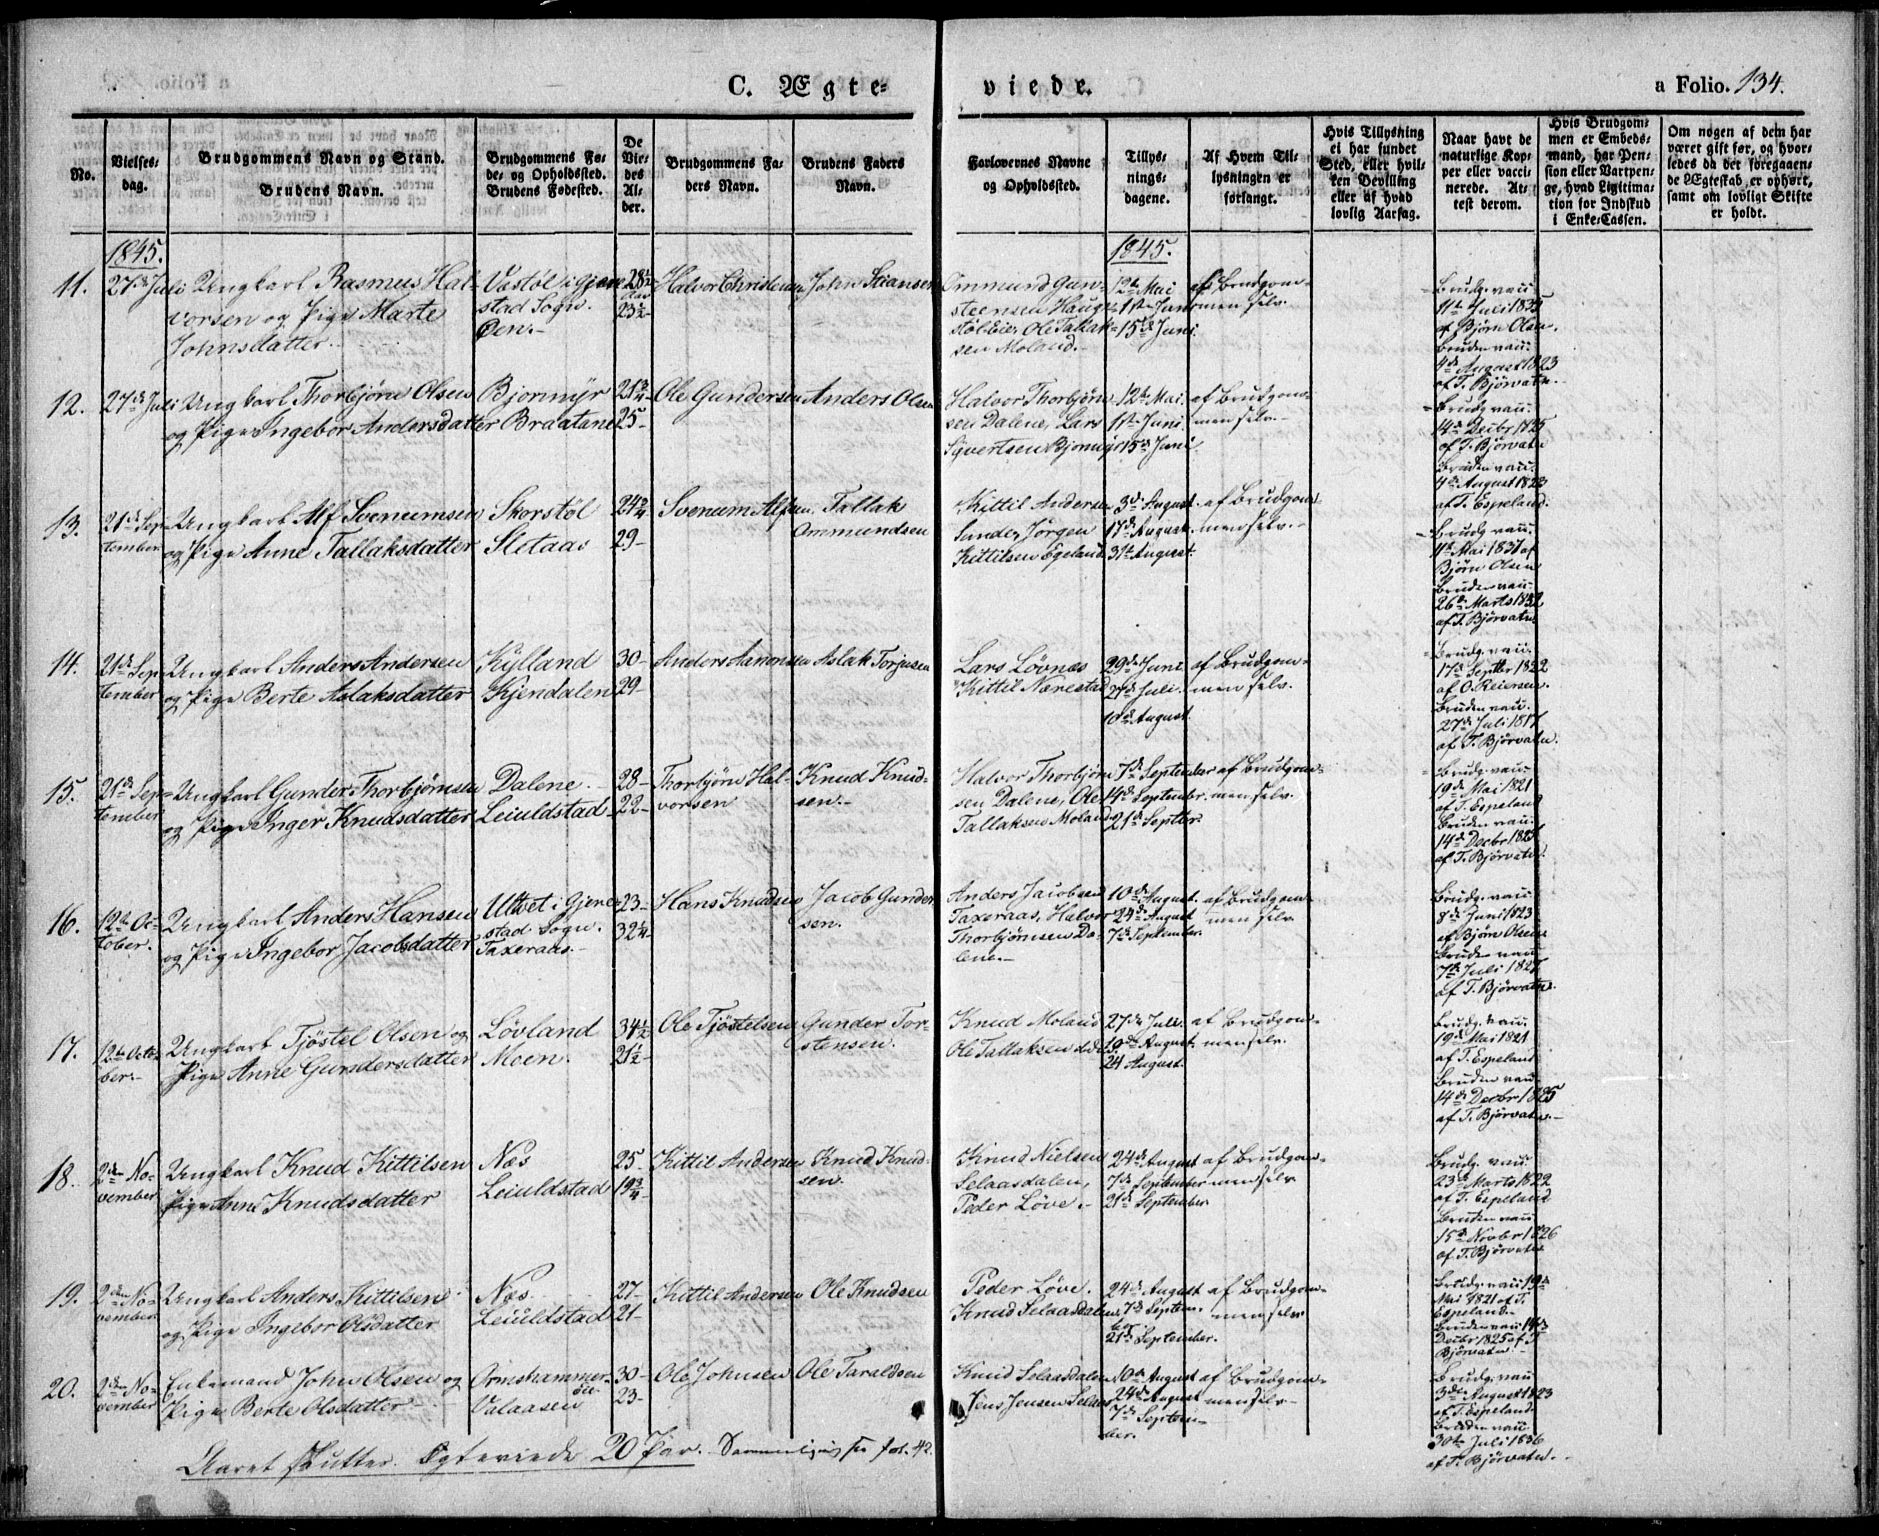 C. Ægte-
viede.
a Folio. 134.
No.
Vielses-
dag.
Brudgommens Navn og Stand.
Brudens Navn.
Brudgommens Fø-
de- og Opholdssted.
Brudens Fødested.
De
Vie-
des
Al-
der.
Brudgommens Fa-
ders Navn.
Brudens Faders
Navn.
Forlovernes Navne
og Opholdssted.
Tillys-
nings-
dagene.
Af Hvem Til-
lysningen er
forlangt.
Hvis Tillysning
ei har fundet
Sted, eller hvil-
ken Bevilling
eller af hvad
lovlig Aarsag.
Naar havt de
naturlige Kop-
per eller vacci-
nerede. At-
test derom.
Hvis Brudgom-
men er Embeds-
mand, har Pen-
sion eller Vartpen-
ge, hvad Ligitima-
tion for Indskud
i Enke-Cassen.
Om nogen af dem har
været gift før, og hvor-
ledes da det foregaaen-
de Ægteskab er ophørt,
samt om lovligt Skifte
er holdt.
1845.
1845.
11. 27de Juli Ungkarl Rasmus Hal-
vorsen og Pige Marte
Johnsdatter.
Vastøl i Gjere-
stad Sogn.
Øen.
28½
23½
Halvor Christensen
John Stiansen
Ommund Gun-
steensen Haug-
støl, Ole Tallak-
sen Moland.
12te Mai
1ste Juni
15de Juni
af Brudgom-
men selv.
Brudg. vau.
11te Juli 1835
af Bjørn Olsen.
Bruden vau.
4de August 1823
af T. Bjørvatn.
12. 27de Juli Ungkarl Thorbjørn Olsen
og Pige Ingebor Andersdatter
Bjormyr
Braatane
21¾
25
Ole Gundersen
Anders Olsen
Halvor Thorbjørn-
sen Dalene, Lars
Sivertsen Bjormyr
12te Mai.
1ste Juni
15de Juni
af Brudgom-
men selv.
Brudg. vau.
14de Decbr 1825
af T. Bjørvatn
Bruden vau.
4de August 1823
af T. Espeland.
13. 21de Sep-
tember
Ungkarl Alf Svenumsen
og Pige Anne Tallaksdatter
Skorstøl
Sletaas
24¾
29
Svenum Alfsen,
Tallak
Ommundsen
Kittil Andersen
Sunde, Jørgen
Kittilsen Egeland
3de August.
17de August.
31te August.
af Brudgom-
men selv.
Brudg. vau.
11te Mai 1831 af
Bjørn Olsen
Bruden vau.
26de Marts 1832
af T. Bjørvatn.
14. 21de Sep-
tember
Ungkarl Anders Andersen
og Pige Berte Aslaksdatter
Kylland
Kjendalen
30
29
Anders Aanonsen
Aslak Torjusen
Lars Løvnæs
Kittil Nærestad
29de Juni
27de Juli.
10de August.
af Brudgom-
men selv.
Brudg. vau.
17de Septbr 1822
af O. Reiersen.
Bruden vau.
27de Juli 1817
af T. Bjørvatn.
15. 21de Sep-
tember
Ungkarl Gunder Thorbjørnsen
og Pige Inger Knudsdatter
Dalene.
Leiuldstad
28
22
Thorbjørn Hal-
vorsen
Knud Knud-
sen.
Halvor Thorbjørn-
sen Dalene, Ole
Tallaksen Moland
7de September
14de Septembr.
21de Septbr.
af Brudgom-
men selv.
Brudg. vau.
19de Mai 1821
af T. Espeland
Bruden vau.
14de Decbr 1825
af T. Bjørvatn.
16. 12te Oc-
tober.
Ungkarl Anders Hansen
og Pige Ingebor Jacobsdatter
Ulvet i Gjere-
stad Sogn.
Taxeraas.
23
32¼
Hans Knudsen
Jacob Gunder-
sen.
Anders Jacobsen
Taxeraas, Halvor
Thorbjørnsen Da-
lene.
10de August.
24de August
7de September.
af Brudgom-
men selv
Brudg. vau.
8de Juni 1823
af Bjørn Olsen.
Bruden vau.
7de Juli 1827
af T. Bjørvatn.
17. 12te Octo-
ber.
Ungkarl Tjøstel Olsen og
Pige Anne Gundersdatter
Løvland
Moen.
34½
21½
Ole Tjøstelsen
Gunder Tor-
stensen.
Knud Moland
Ole Tallaksen
27de Juli.
10de August.
24 August.
af Brudgom-
men selv.
Brudg. vau.
19de Mai 1821
af T. Espeland
Bruden vau.
14de Decbr 1825
af T. Bjørvatn.
18. 2den No-
vember
Ungkarl Knud Kittilsen
Pige Anne Knudsdatter
Næs
Leiuldstad
25
19¾
Kittil Andersen
Knud Knud-
sen.
Knud Nielsen
Selaasdalen,
Peder Løve.
24de August
7de September
21de September.
af Brudgom-
men selv
Brudg. vau.
23de Marts 1822
af T. Espeland
Bruden vau
15de Novbr 1826
af T. Bjørvatn
19. 2den No-
vember.
Ungkarl Anders Kittilsen
og Pige Ingebor Olsdatter
Næs.
Leiuldstad
27
21
Kittil Andersen
Ole Knudsen
Peder Løve.
Knud Selaasdalen
24de August
7de Septem-
ber
21de September.
af Brudgom-
men selv
Brudg. vau. 19de
Mai 1821 af T.
Espeland.
Bruden vau. 14de
Decbr 1825 af T.
Bjørvatn.
20. 2den No-
vember
Enkemand John Olsen og
Pige Berte Olsdatter
Ormshammer-
en
Valaasen
30
23
Ole Johnsen
Ole Taraldsen
Knud Selaasdalen
Jens Jensen Selaas
10de August
24de August
7de Septem-
ber.
af Brudgom-
men selv
Brudg. vau
3de August 1823
af T. Espeland
Bruden vau.
30te Juli 1836
af T. Bjørvatn.
Aaret slutter. Egteviede 20 Par. Sammenlign fol. 42.